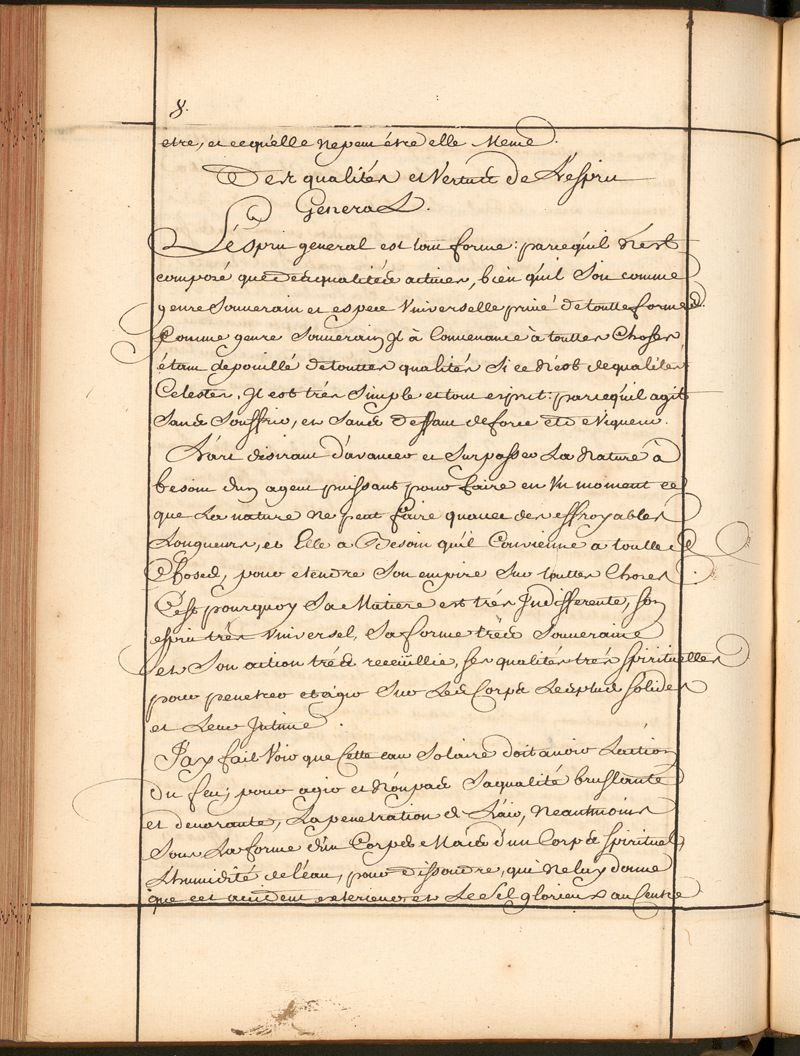 8.
etre, et ce qu'elle ne peut étre elle Meme.
Des qualités et Vertus de L'Esprit
General.
L'ésprit general est tout forme: parcequ'il n'est
composé que des qualités actives, bien qu'il soit comme
genre Souverain et espece Vniverselle privé de toutte formes.
Comme genre Souverain Il à Convenance à touttes Choses
étant depouillé de touttes qualités si ce n'est de qualités
Celestes, Il est trés simple et tout esprit: parcequ'il agit
sans souffrir, et sans deffaut de force et de Vigueur.
L'art desirant d'avancer et surpasser La Nature à
besoin d'un agent puissant pour faire en Vn moment ce
que La nature ne peut faire qu'avec des effroyables
Longueurs, et Elle a Besoin qu'il Convienne a touttes
Choses, pour etendre Son empire Sur touttes Choses.
C'est pourquoy Sa Matiere est trés Indifferente, son
esprit trés Vniversel, Sa forme trés Souveraine
et Son action trés receüillie, ses qualités trés spirituelles
pour penetrer et agir Sur Les Corps Les plus solides
et Leur Intime.
J'ay fait Voir que Cette eau Solaire doit avoir L'action
Du feu; pour agir et non pas Sa qualité brustante
et devorante, La penetration de L'air, Neantmoins
Sous La forme d'un Corps Mais d'un Corps Spirituel,
L'humidité de l'eau, pour dissoudre, qui ne luy donne
que cet accident exterieur et Le Sel glorieux au Centre